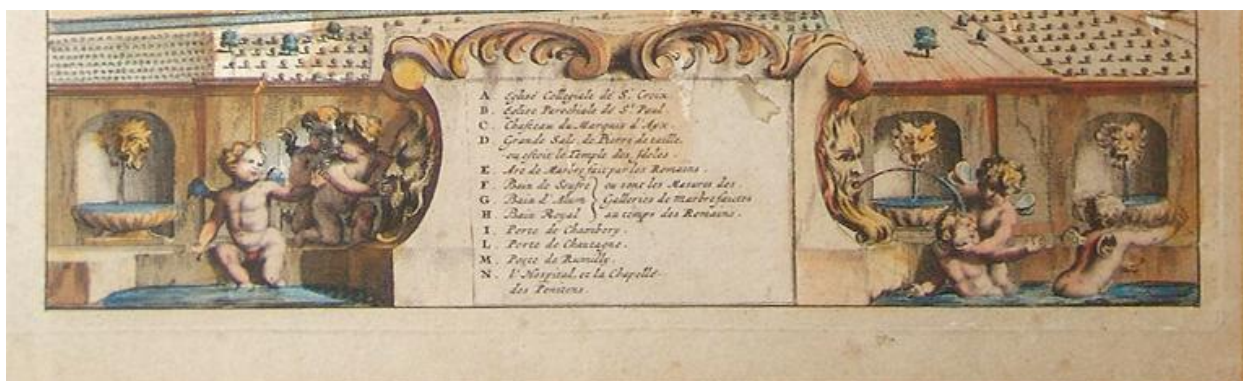 A. Eglise Collegiale de St. Croix.
B. Eglise Parochiale de St. Paul.
C. Chasteau du Marquis d'Ayx.
D. Grande Sale, de Pierre de taille,
ou estoit le Temple des Idoles.
E. Arc de Marbre fait par les Romains.
F. Bain de Soufre } ou sont les Masures des
G. Bain d'Alum } Galleries de marbre faictes
H. Bain Royal } au temps des Romains.
I. Porte de Chambery.
L. Porte de Chautagne.
M. Porte de Rumilly.
N. L'Hospital, et la Chapelle
des Penitens.